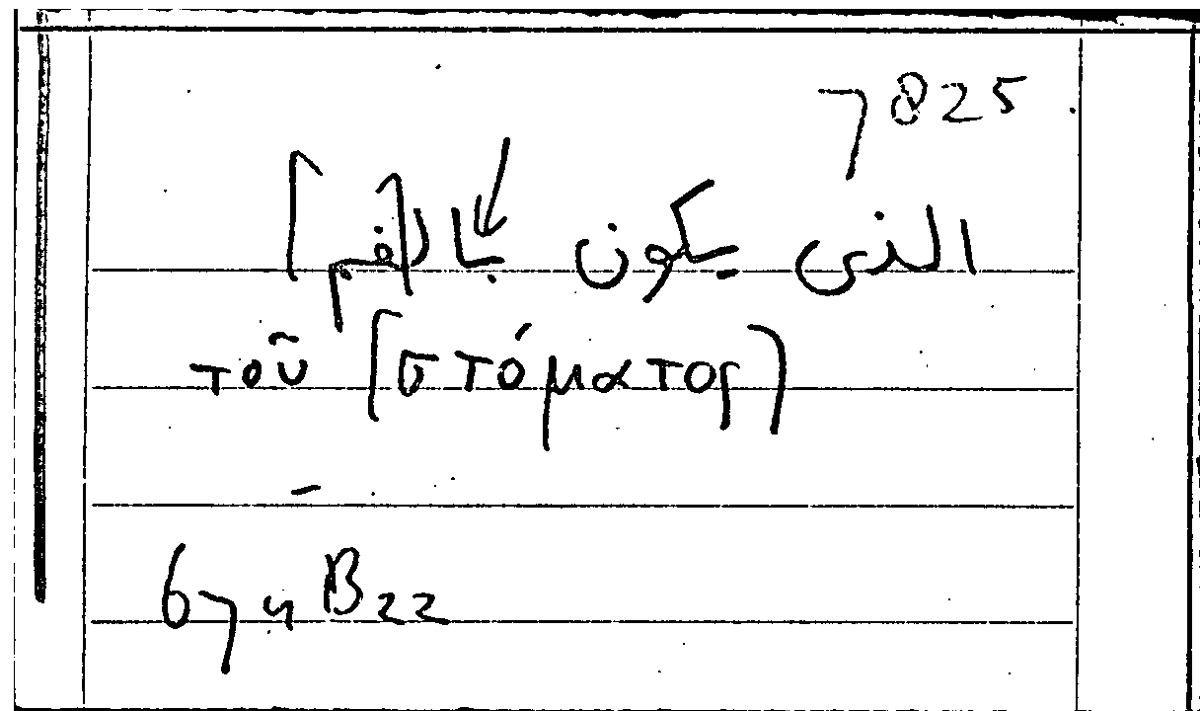 7825
الذى يكون بال[فم]
τοῦ [στόματος]
674 B 22